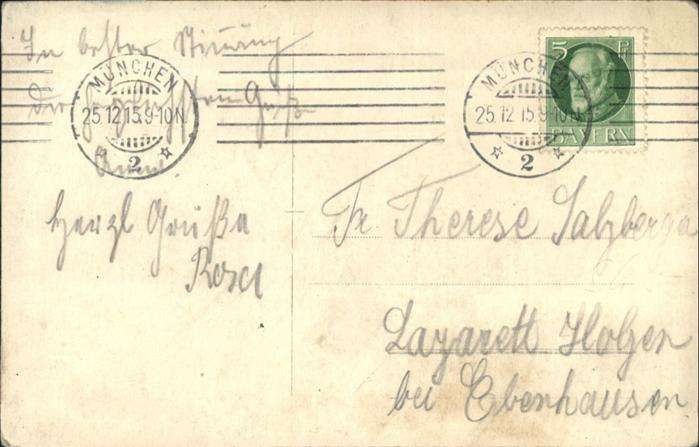 In bester Stimmung
MÜNCHEN
25.12.15.9-10N.
2
Herzl Grüße
Rosa
5 Pf
BAYERN
MÜNCHEN
25.12.15.9-10N.
2
Fr Therese Salzberga
Lazarett Holzen
bei Ebenhausen